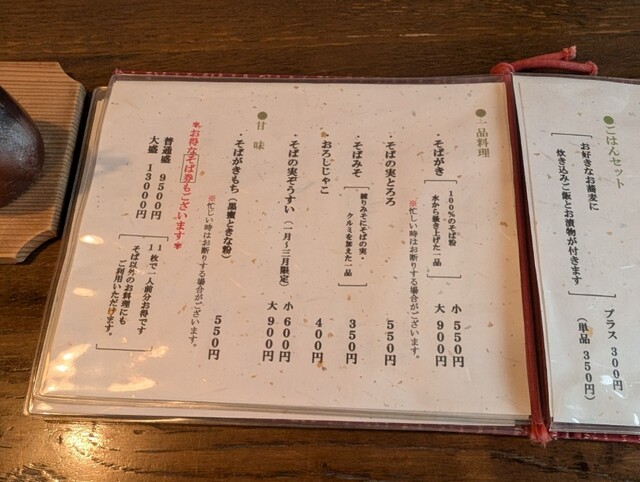 ●ごはんセット
お好きなお蕎麦に
炊き込みご飯とお漬物が付きます
プラス 300円
(単品 350円)
●一品料理
・そばがき
100%のそば粉
水から巻き上げた一品
小 550円
大 900円
※忙しい時はお断りする場合がございます。
・そばの実とろろ 550円
・そばみそ
練りみそにそばの実・
クルミを加えた一品
350円
おろしじゃこ 400円
・そばの実ぞうすい(一月～三月限定)
小 600円
大 900円
●甘味
・そばがきもち(黒蜜ときな粉) 550円
※忙しい時はお断りする場合がございます。
★お得なそば券もございます★
普通盛 9500円
大盛 13000円
1枚で一人前分お得です
そば以外のお料理にも
ご利用いただけます。